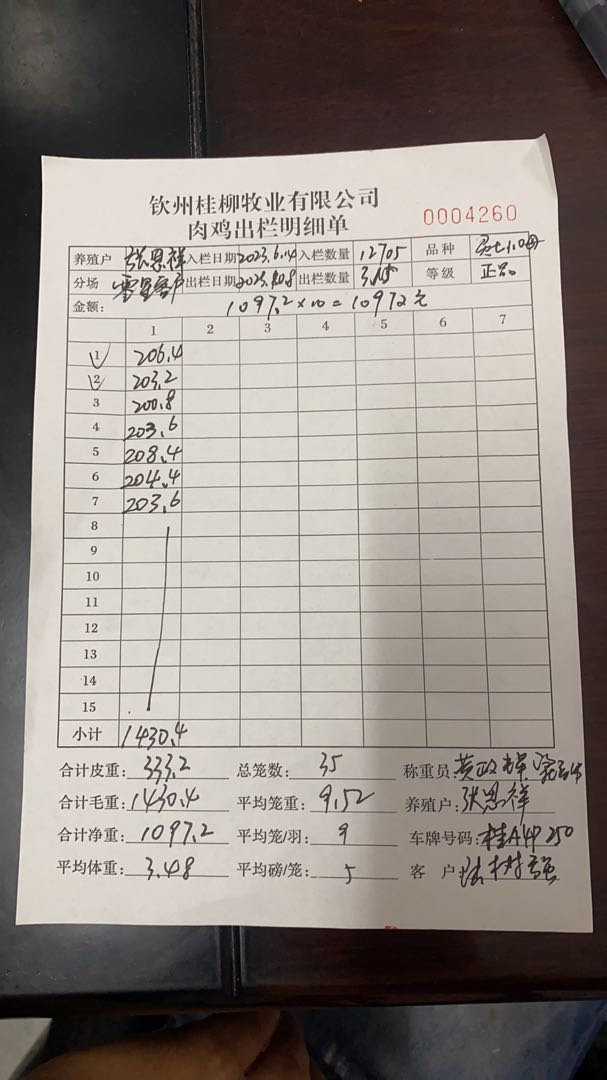 钦州桂柳牧业有限公司
肉鸡出栏明细单
0004260
养殖户 张恩祥 入栏日期 2023.6.14 入栏数量 12705 品种
分场 零星客户 出栏日期 出栏数量 315 等级 正品
金额: 1097.2×10=10972元
1 2 3 4 5 6 7
1 206.4
2 203.2
3 200.8
4 203.6
5 208.4
6 204.4
7 203.6
8
9
10
11
12
13
14
15
小计 1430.4
合计皮重: 333.2 总笼数: 35 称重员: 黄政
合计毛重: 1430.4 平均笼重: 9.52 养殖户: 张恩祥
合计净重: 1097.2 平均笼/羽: 9 车牌号码: 桂A
平均体重: 3.48 平均磅/笼: 5 客户: 陆树强